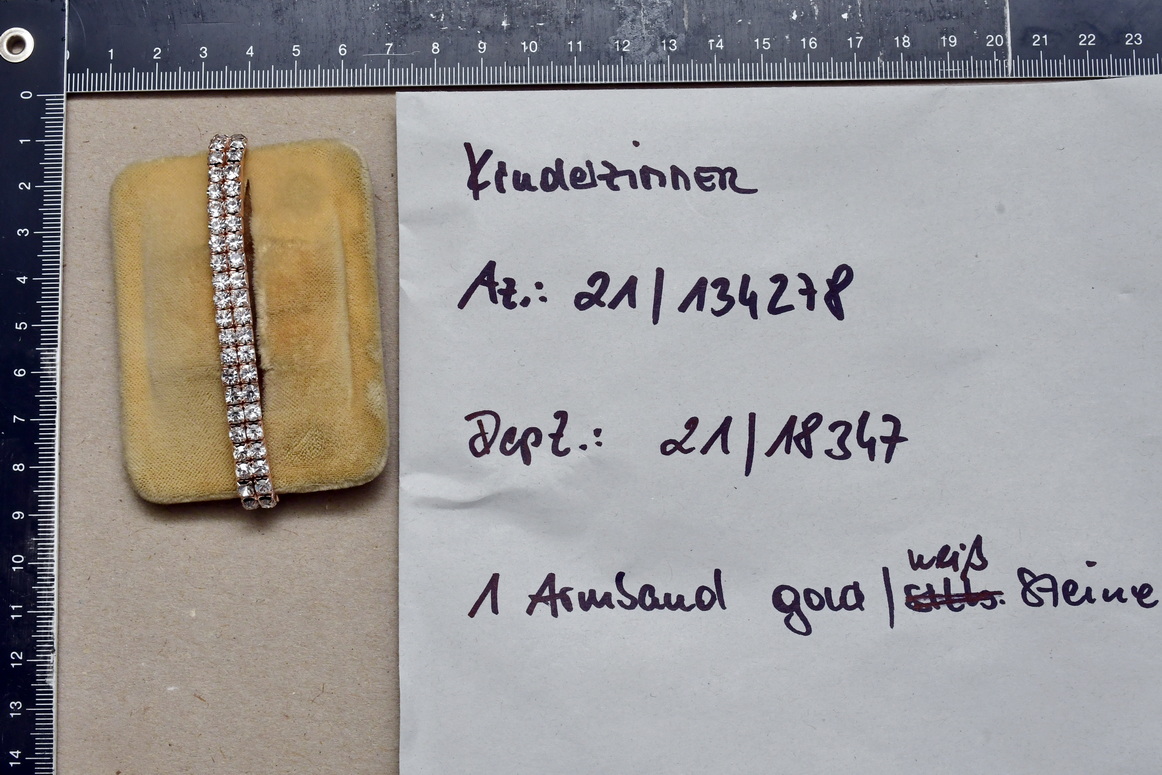 1 2 3 4 5 6 7 8 9 10 11 12 13 14 15 16 17 18 19 20 21 22 23
0 1 2 3 4 5 6 7 8 9 10 11 12 13 14
Kinderzimmer
Az.: 21/134278
Depz.: 21/18347
weiß
1 Armband gold/ Steine